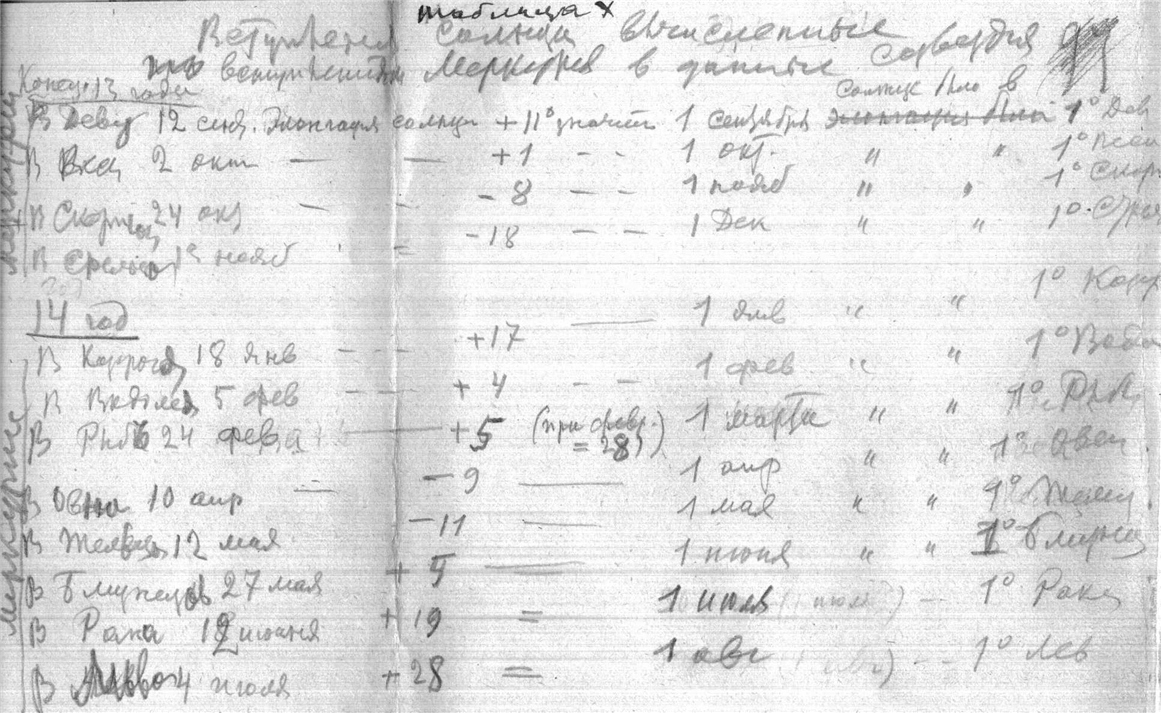 таблица х
Вступления солнца вычисленные
по вступлениям Меркурия в данные созвездия
Конец 13 года
Солнце было в
В Деву 12 сент. Элонгация солнца +11° значит 1 сентября 1° Дев
В Весы 2 окт — — +1 - - 1 окт. " " 1° Весы
- 8 - - 1 нояб " " 1° Скорп
В Скорпион 24 окт — - 18 - - 1 Дек " " 1° Стрел
В Стрельца нояб
14 год
В Козерога 18 янв - - - +17 — 1 янв " " 1° Козер
В Водолея 5 фев - - - + 4 - - 1 фев " " 1° Водол
В Рыбы 24 фев — +5 (при февр. = 28) 1 марта " " 1° Рыб
В Овна 10 апр — - 9 — 1 апр " " 1° Овен
В Тельца 12 мая -11 — 1 мая " " 1° Телец
В Близнецов 27 мая + 5 — 1 июня " " 1° Близнец
В Рака 12 июня + 19 = 1 июля (1 июля) — 1° Рака
В Льва 4 июля + 28 = 1 авг - - 1° Лев
Меркурий
Меркурий